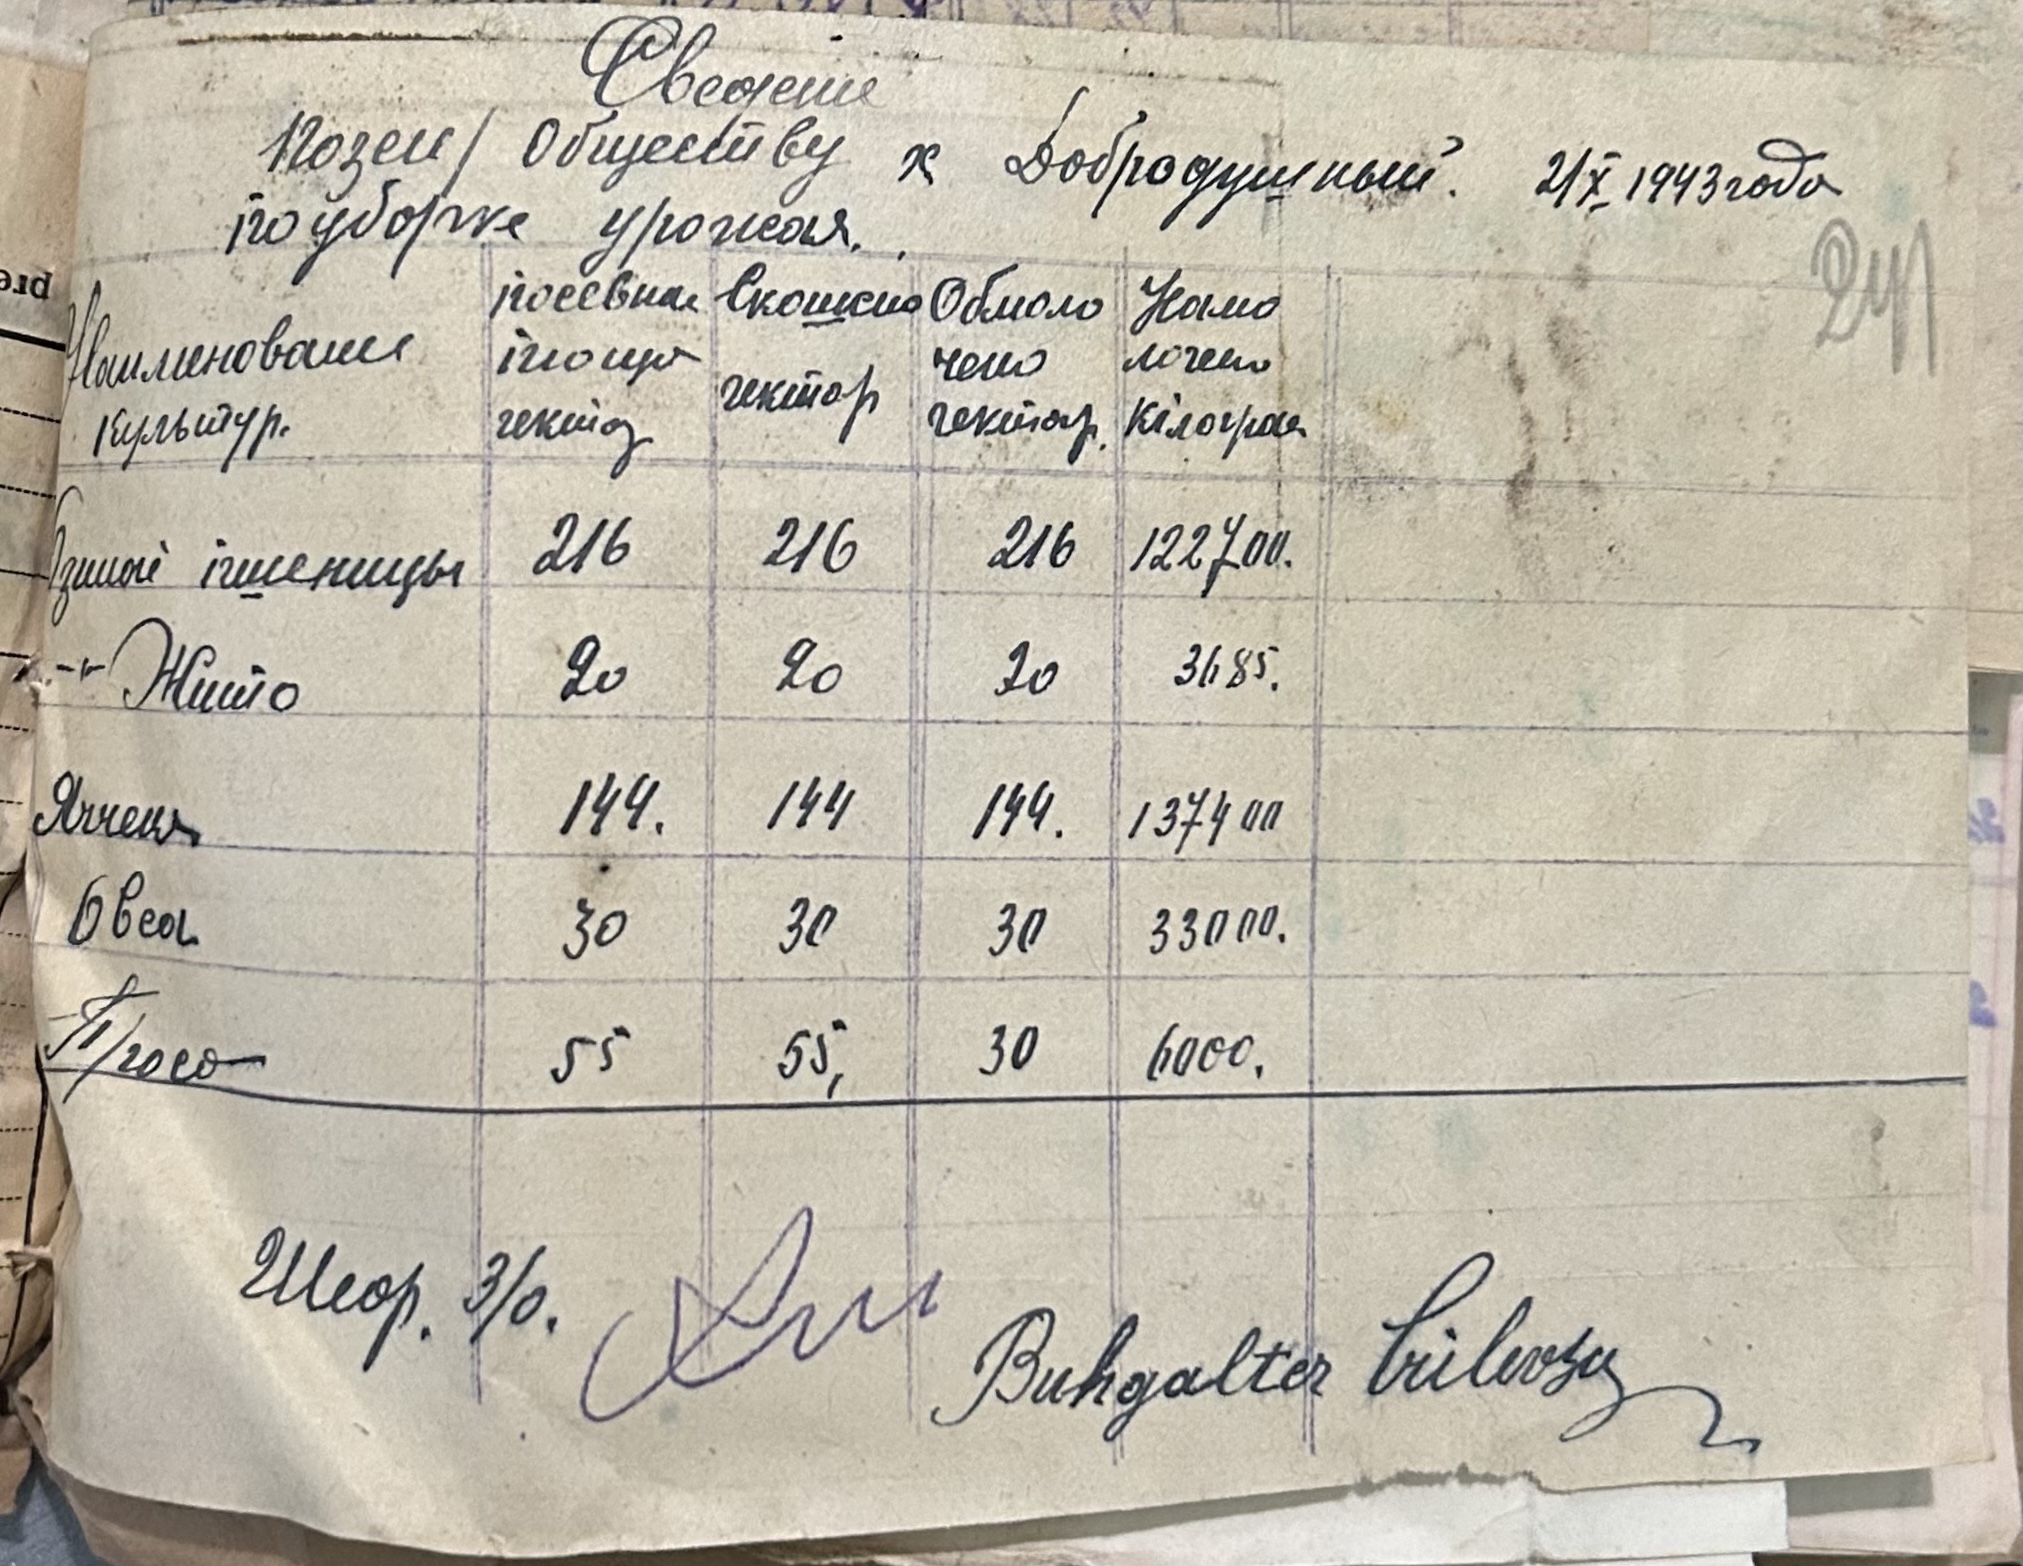 Сведение
Позем/ Обществу х Добродушный. 2/X 1943 года
по уборке урожая.
Наименование культур. посевная площа гектар Скошено гектар Обмолочено гектар. Намолочено Кілограм
Озимой пшеницы 216 216 216 122700.
-"- Жито 20 20 20 3685.
Ячменя 144. 144 144. 137400
Овса 30 30 30 33000.
Просо 55 55, 30 6000.
З/о.
Buhgalter